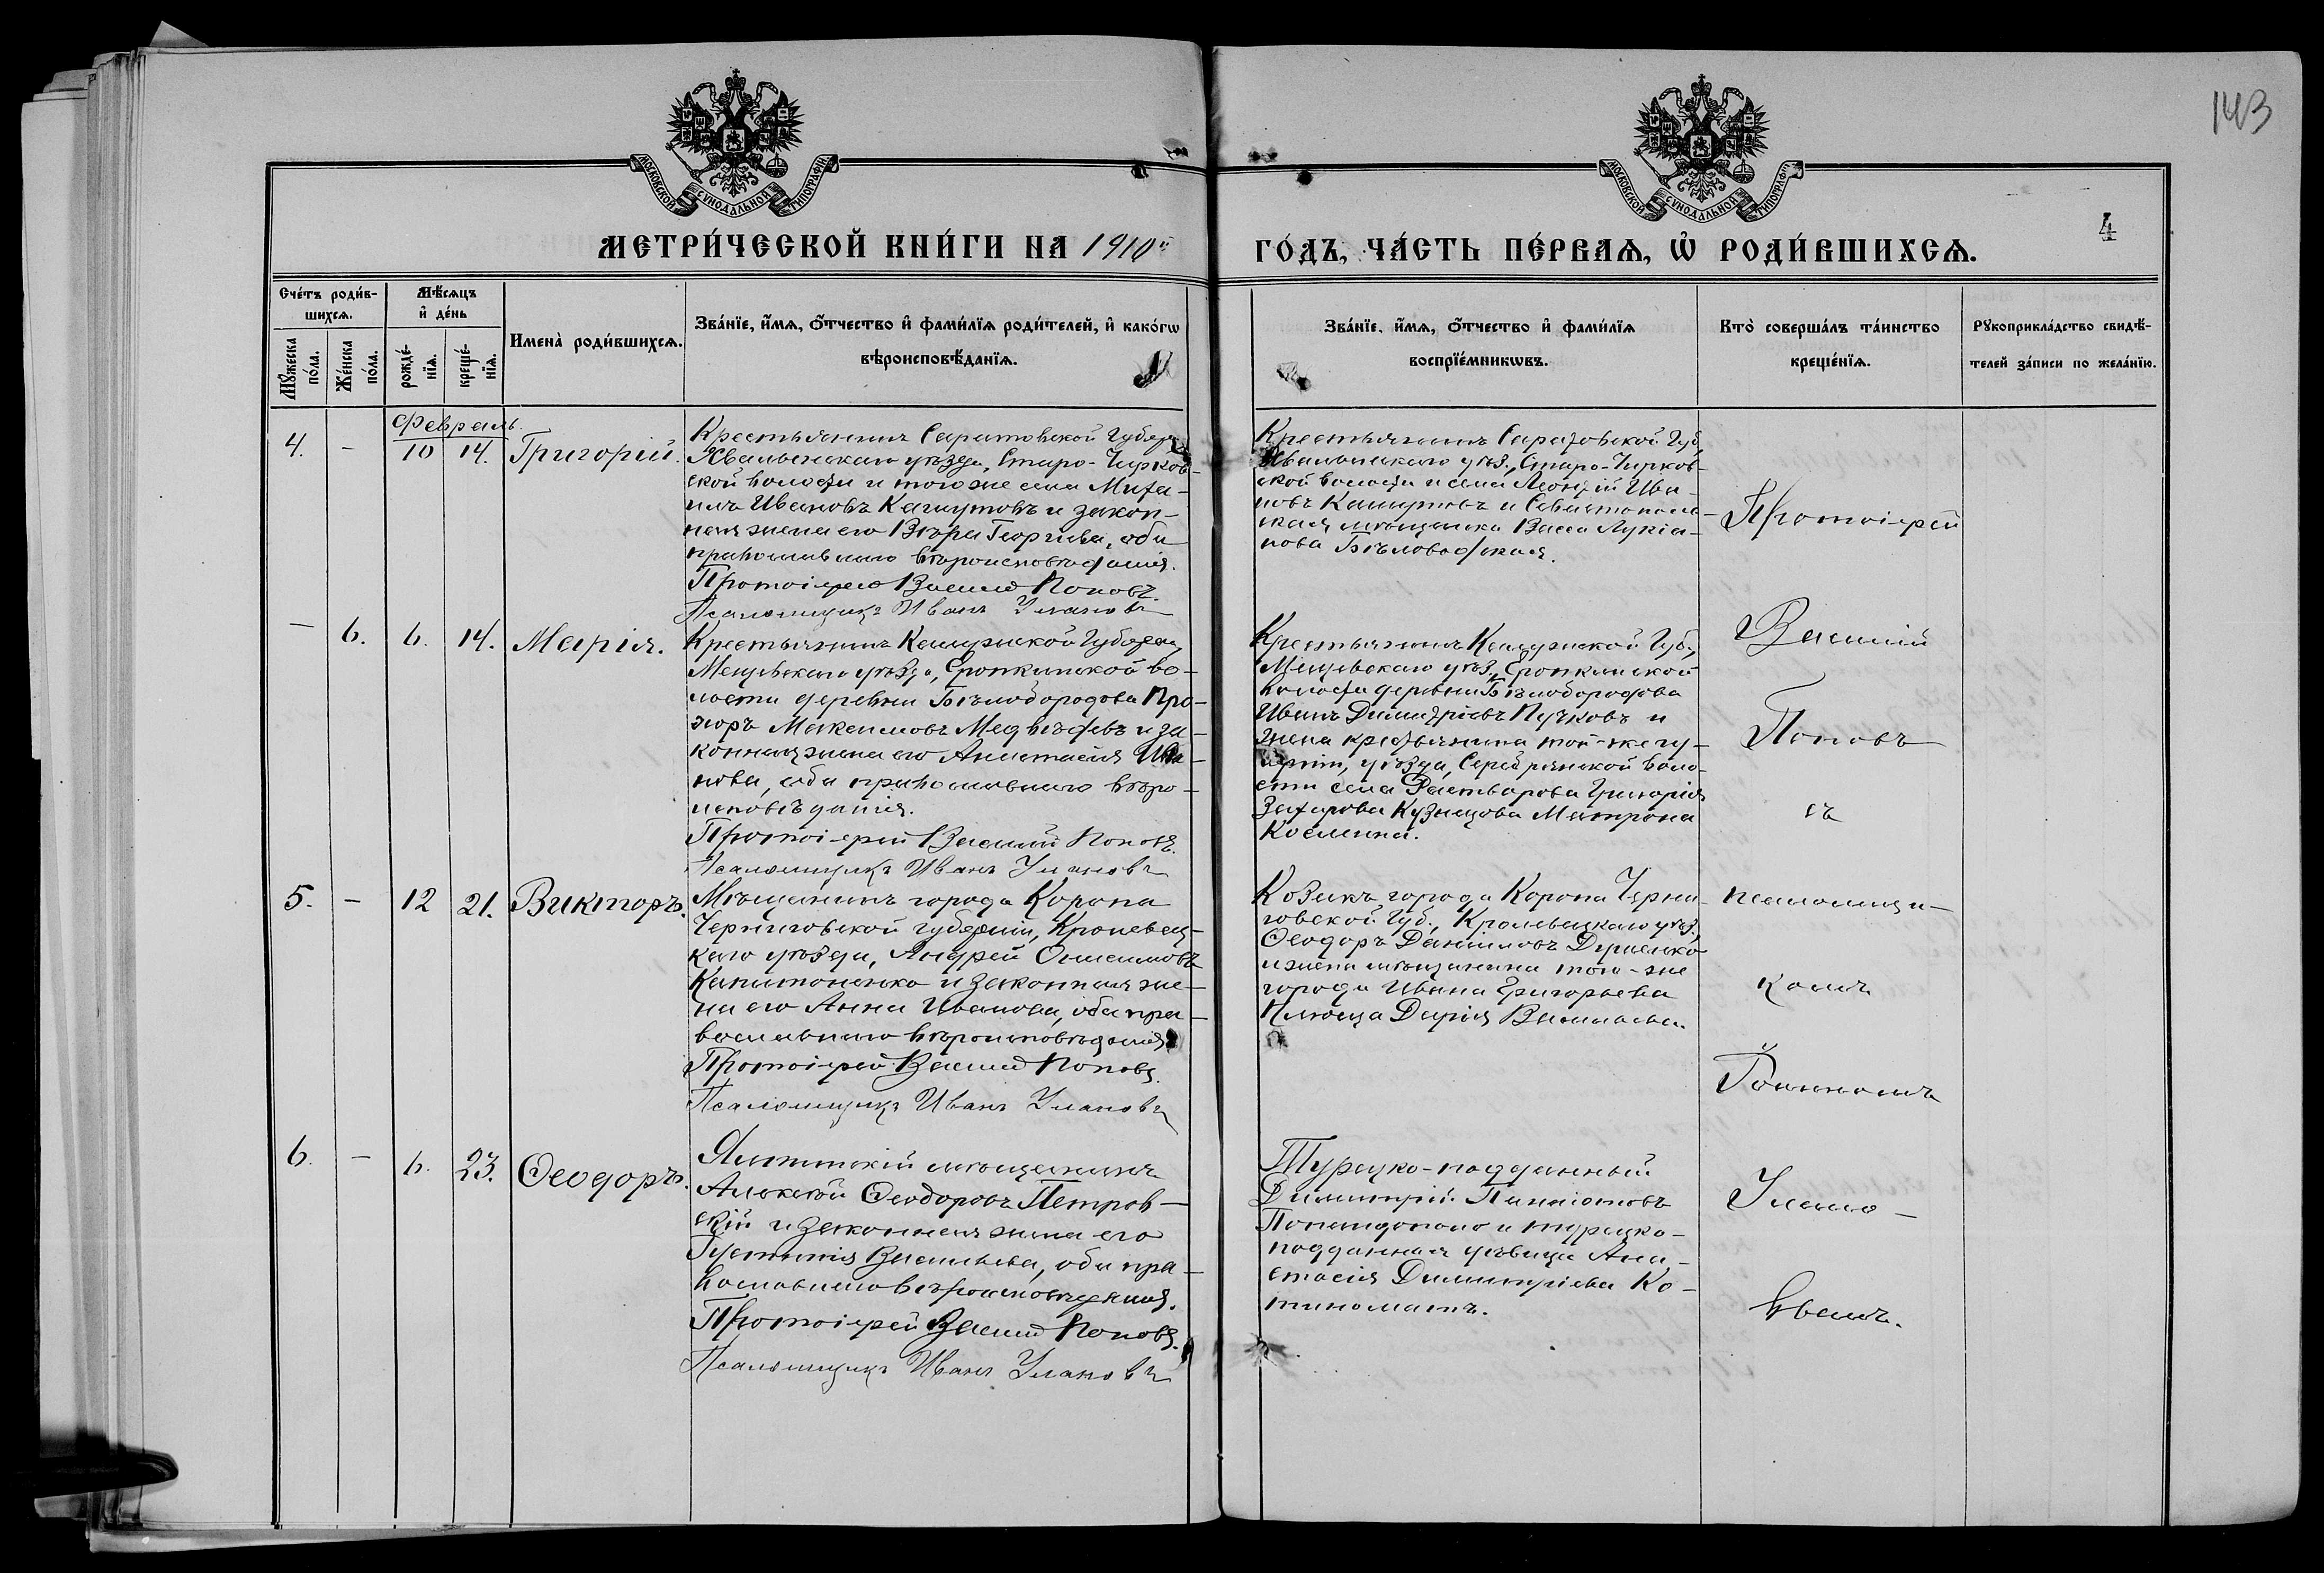 143
МОСКОВСКОЙ СѴНОДАЛЬНОЙ ТИПОГРАФІИ
МОСКОВСКОЙ СѴНОДАЛЬНОЙ ТИПОГРАФІИ
4
МЕТРИ́ЧЕСКОЙ КНИ́ГИ НА 1910й
ГО́ДЪ, ЧА́СТЬ ПЕ́РВАѦ, Ѡ҆ РОДИ́ВШИХСѦ.
Сче́тъ роди́в-
шихсѧ.
Мꙋ́жеска по́ла.
Же́нска по́ла.
Мѣ́сѧцъ
и҆ де́нь
рожде́-нїѧ.
креще́-нїѧ.
Имена̀ роди́вшихсѧ.
Зва́нїе, и҆́мѧ, ѻ҆́тчество и҆ фами́лїѧ роди́телей, и҆ како́гѡ
вѣроисповѣ́данїѧ.
Зва́нїе, и҆́мѧ, ѻ҆́тчество и҆ фами́лїѧ
воспрїе́мникѡвъ.
Кто̀ соверша́лъ та́инство
креще́нїѧ.
Рꙋкоприкла́дство свидѣ́-
телей за́писи по жела́нїю.
Февраль.
4. - 10 14. Григорій.
Крестьянинъ Саратовской Губерн.
Хвалынскаго уѣзда, Старо-Чирков-
ской волости и того же села Миха-
илъ Ивановъ Кашутовъ и закон-
ная жена его Вѣра Георгіева, оба
православнаго вѣроисповѣданія.
Протоіерей Василій Поповъ.
Псаломщикъ Иванъ Улановъ
Крестьянинъ Саратовской Губ.,
Хвалынскаго уѣз., Старо-Чирков-
ской волости и села Леонтій Ива-
новъ Кашутовъ и Севастополь-
ская мѣщанка Васса Лукіа-
нова Бѣловодская.
- 6. 6. 14. Марія.
Крестьянинъ Калужской Губерн.,
Мещовскаго уѣзда, Еропкинской во-
лости деревни Бѣлобородова Про-
хоръ Максимовъ Медвѣдевъ и за-
конная жена его Анастасія Ива-
нова, оба православнаго вѣро-
исповѣданія.
Протоіерей Василій Поповъ.
Псаломщикъ Иванъ Улановъ
Крестьянинъ Калужской Губ.,
Мещовскаго уѣз., Еропкинской
волости деревни Бѣлобородова
Иванъ Димитріевъ Пучковъ и
жена крестьянина той-же гу-
берніи, уѣзда, Серебрянской воло-
сти села Растворова Григорія
Захарова Кузнецова Матрона
Космина.
5. - 12 21. Викторъ.
Мѣщанинъ города Коропа
Черниговской губерніи, Кролевец-
каго уѣзда, Андрей Онисимовъ
Капитоненко и законная же-
на его Анна Иванова, оба пра-
вославнаго вѣроисповѣданія
Протоіерей Василій Поповъ.
Псаломщикъ Иванъ Улановъ
Козакъ города Коропа Черни-
говской Губ., Кролевецкаго уѣз.,
Ѳеодоръ Даніиловъ
и жена мѣщанина того-же
города Ивана Григорьева
Дарія Васильева.
6. - 6. 23. Ѳеодоръ.
Ялтинскій мѣщанинъ
Алексѣй Ѳеодоровъ Петров-
скій и законная жена его
Васильева, оба пра-
вославнаго вѣроисповѣданія.
Протоіерей Василій Поповъ.
Псаломщикъ Иванъ Улановъ
Турецко-подданный
Димитрій
Попандопало и турецко-
подданная дѣвица Ана-
стасія Димитріева Ко-
Протоіерей
Василій
Поповъ
съ
псаломщи-
комъ
Іоанномъ
Улано-
вымъ.